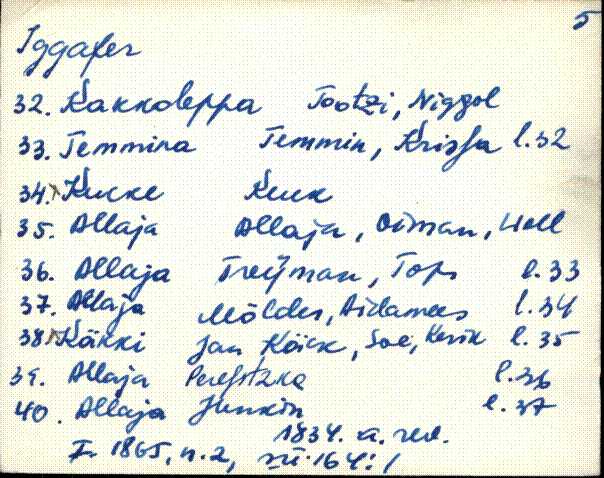 5
Iggafer
32. Kakkoleppa Tootzi, Niggol
33. Temmina Temmin, Krissa l. 32
34. Kukke Kuuk
35. Allaja Allaja, Oiman, Woll
36. Allaja Treijman, Tops l. 33
37. Allaja Mölder, Aidamees l. 34
38. Käkki Jan Käck, Soe, Kerik l. 35
39. Allaja l. 36
40. Allaja Junkin l. 37
1834. a. rev.
I. 1865, n. 2,